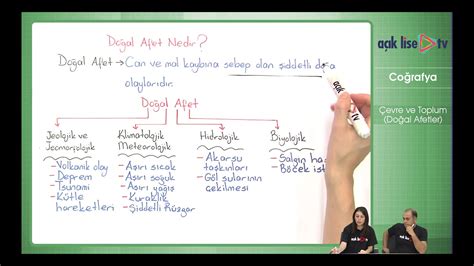 Doğal Afet Nedir?
Doğal Afet → Can ve mal kaybına sebep olan şiddetli
olaylarıdır.
Doğal Afet
Jeolojik ve
Jeomorfolojik
- Volkanik olay
- Deprem
- Tsunami
- Kütle
hareketleri
Klimatolojik
Meteorolojik
- Aşırı sıcak
- Aşırı soğuk
- Aşırı yağış
- Kuraklık
- Şiddetli Rüzgar
Hidrolojik
- Akarsu
taşkınları
- Göl sularının
çekilmesi
Biyolojik
- Salgın
- Böcek
açık lise tv
Coğrafya
Çevre ve Toplum
(Doğal Afetler)